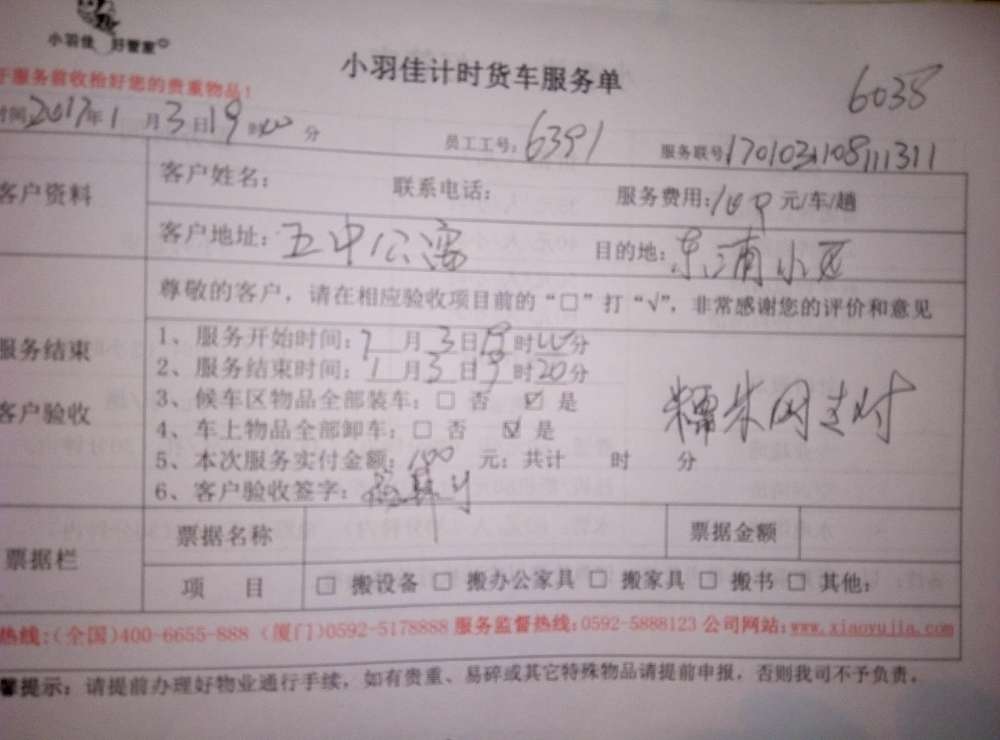 小羽佳 好管家
小羽佳计时货车服务单
6035
于服务前收拾好您的贵重物品！
时间 2017年1月3日19时00分
员工工号：6391
服务联号170103110811311
客户资料
客户姓名：
联系电话：
服务费用：100元/车/趟
客户地址：五中公寓
目的地：东浦小区
尊敬的客户，请在相应验收项目前的“□”打“√”，非常感谢您的评价和意见
服务结束
客户验收
1、服务开始时间：1月3日19时00分
2、服务结束时间：1月3日19时20分
3、候车区物品全部装车：□ 否 ☑ 是
4、车上物品全部卸车：□ 否 ☑ 是
5、本次服务实付金额：100 元；共计 时 分
6、客户验收签字：
糯米网支付
票据栏
票据名称
票据金额
项 目
□ 搬设备 □ 搬办公家具 □ 搬家具 □ 搬书 □ 其他：
热线：(全国)400-6655-888 (厦门)0592-5178888 服务监督热线：0592-5888123 公司网站：www.xiaoyujia.com
馨提示：请提前办理好物业通行手续，如有贵重、易碎或其它特殊物品请提前申报，否则我司不予负责。